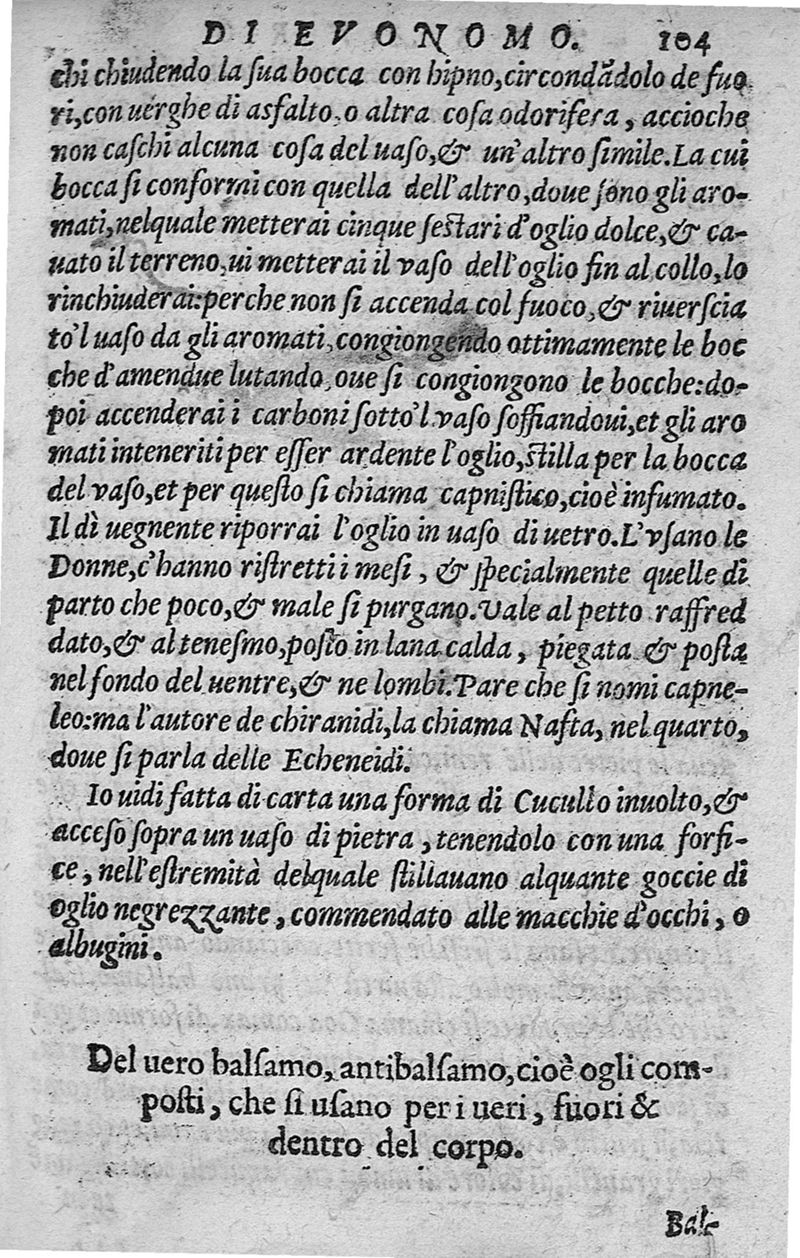 DI EVONOMO. 104
chi chiudendo la ſua bocca con hipno, circondãdolo de fuo
ri, con uerghe di asfalto, o altra coſa odorifera, accioche
non caſchi alcuna coſa del uaſo, & un'altro ſimile. La cui
bocca ſi conformi con quella dell'altro, doue ſono gli aro-
mati, nelquale metterai cinque ſeſtari d'oglio dolce, & ca-
uato il terreno, ui metterai il vaſo dell'oglio fin al collo, lo
rinchiuderai: perche non ſi accenda col fuoco, & riuerſcia
to'l uaſo da gli aromati, congiongendo ottimamente le boc
che d'amendue lutando, oue ſi congiongono le bocche: do-
poi accenderai i carboni ſotto'l vaſo ſoffiandoui, et gli aro
mati inteneriti per eſſer ardente l'oglio, ſtilla per la bocca
del vaſo, et per queſto ſi chiama capniſtico, cioè infumato.
Il dì uegnente riporrai l'oglio in uaſo di uetro. L'vſano le
Donne, c'hanno riſtretti i meſi, & ſpecialmente quelle di
parto che poco, & male ſi purgano. Vale al petto raffred
dato, & al teneſmo, poſto in lana calda, piegata & poſta
nel fondo del uentre, & ne lombi. Pare che ſi nomi capne-
leo: ma l'autore de chiranidi, la chiama Nafta, nel quarto,
doue ſi parla delle Echeneidi.
Io uidi fatta di carta una forma di Cucullo inuolto, &
acceſo ſopra un uaſo di pietra, tenendolo con una forfi-
ce, nell'eſtremità delquale ſtillauano alquante goccie di
oglio negrezzante, commendato alle macchie d'occhi, o
albugini.
Del uero balſamo, antibalſamo, cioè ogli com-
poſti, che ſi uſano per i ueri, fuori &
dentro del corpo.
Bal-